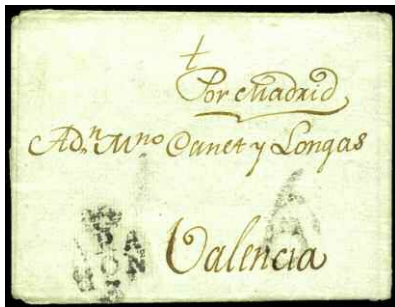 Por Madrid
A Dn. Mno Canet y Longas
Valencia